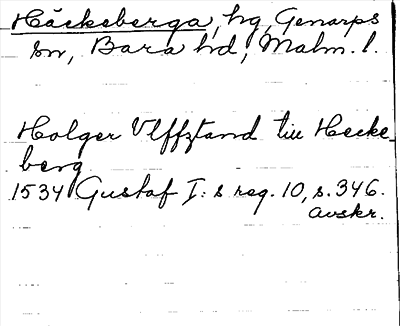 Häckeberga, hg, Genarps
sn, Bara hd, Malm. l.
Holger Vlffztand till Hecke_
berg
1534 Gustaf I:s reg. 10, s. 346.
Avskr.